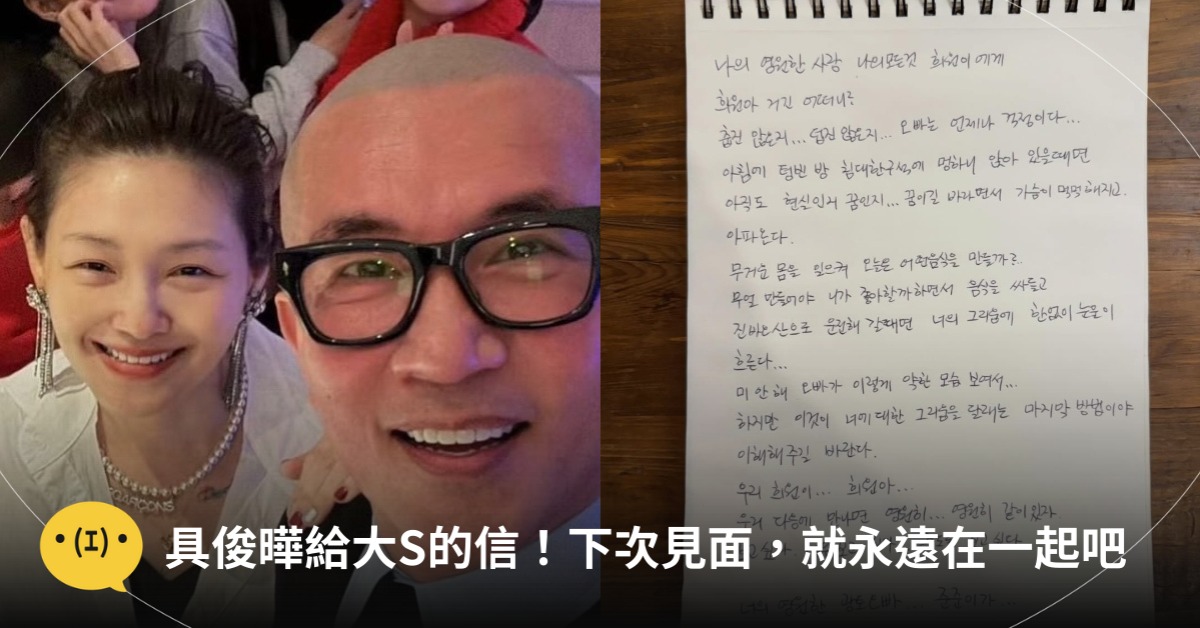 나의 영원한 사랑 나의모든것 희원이에게
희원아 거긴 어떠니?
춥진 않은지... 덥진 않은지... 오빠는 언제나 걱정이다...
아침에 텅빈 방 침대한구석에 멍하니 앉아 있을때면
아직도 현실인지 꿈인지... 꿈이길 바라면서 가슴이 먹먹해지고.
아파온다.
무거운 몸을 일으켜 오늘은 어떤음식을 만들까?
무얼 만들어야 니가 좋아할까하면서 음식을 싸들고
진바오산으로 운전해 갈때면 너의 그리움에 한없이 눈물이
흐른다...
미안해 오빠가 이렇게 약한 모습 보여서...
하지만 이것이 너에대한 그리움을 달래는 마지막 방법이야
이해해주길 바란다.
우리 희원이... 희원아...
우리 다음에 만나면 영원히... 영원히 같이있자
너의 영원한 오빠 준준이가...
GARCONS
(I)
具俊曄給大S的信！下次見面，就永遠在一起吧